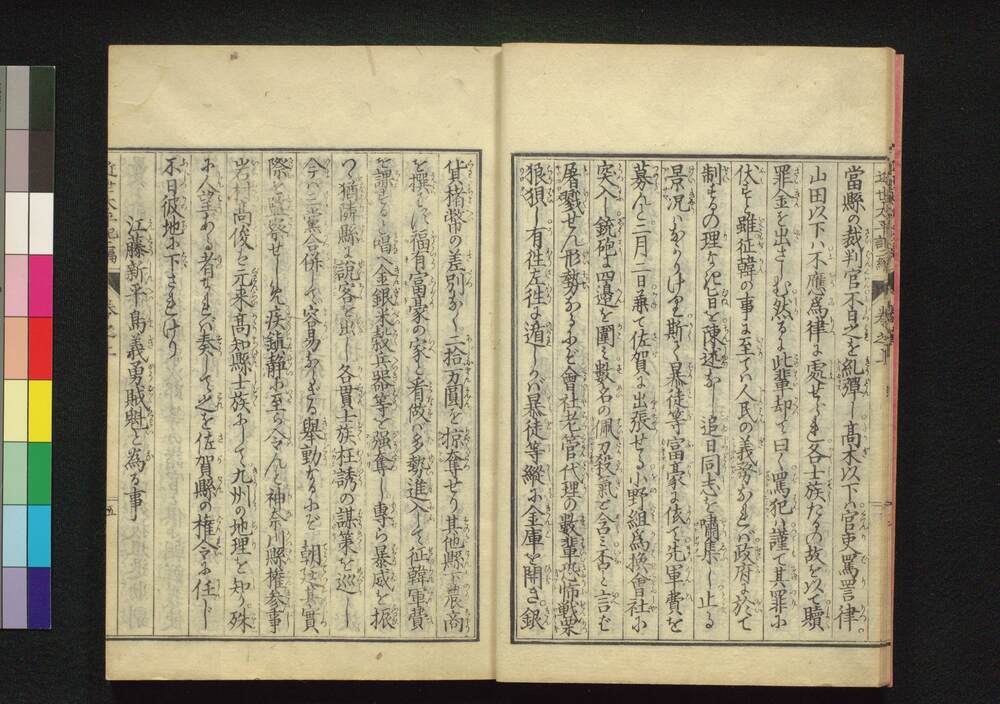 當縣の裁判官不日之を糺彈し髙木以下ハ官吏罵詈律
山田以下ハ不應為律に處せられ各士族たるの故を以て贖
罪金を出さしむ然るに此輩却て曰く罵犯ハ謹て其罪に
伏すと雖征韓の事に至てハ人民の義務なれバ政府に於て
制するの理なき旨を陳述なし追日同志を嘯集し止る
景況ハなかりけり斯く暴徒等冨豪に依て先軍費を
募んと二月一日兼て佐賀に出張せる小野組為換會社に
突入し銃砲に四邉を圍ミ數名の佩刀殺氣を含ミ否と言ば
屠戮せん形勢なるにぞ會社老管代理の數輩恐怖戰栗
狼狽し有徃左徃に遁しかバ暴徒等縦に金庫を開き銀
貨楮幣の差別なく二拾万圓を掠奪せり其他縣下農商
を撰バず福有冨豪の家と看做バ多勢進入して征韓軍費
を調すると唱へ金銀米穀兵器等を强奪し專ら暴威を振
つて猶隣縣に説客を出し各貫士族枉誘の謀策を巡し
今ハ三黨合併して容易ならざる舉動なるにぞ 朝廷其實
際を
岩村髙俊ハ元来髙知縣士族にして九州の地理を知り殊
に人望ある者なれバ奏して之を佐賀縣の權令に任じ
不日彼地に下されけり
江藤新平島義勇賊魁と為る事